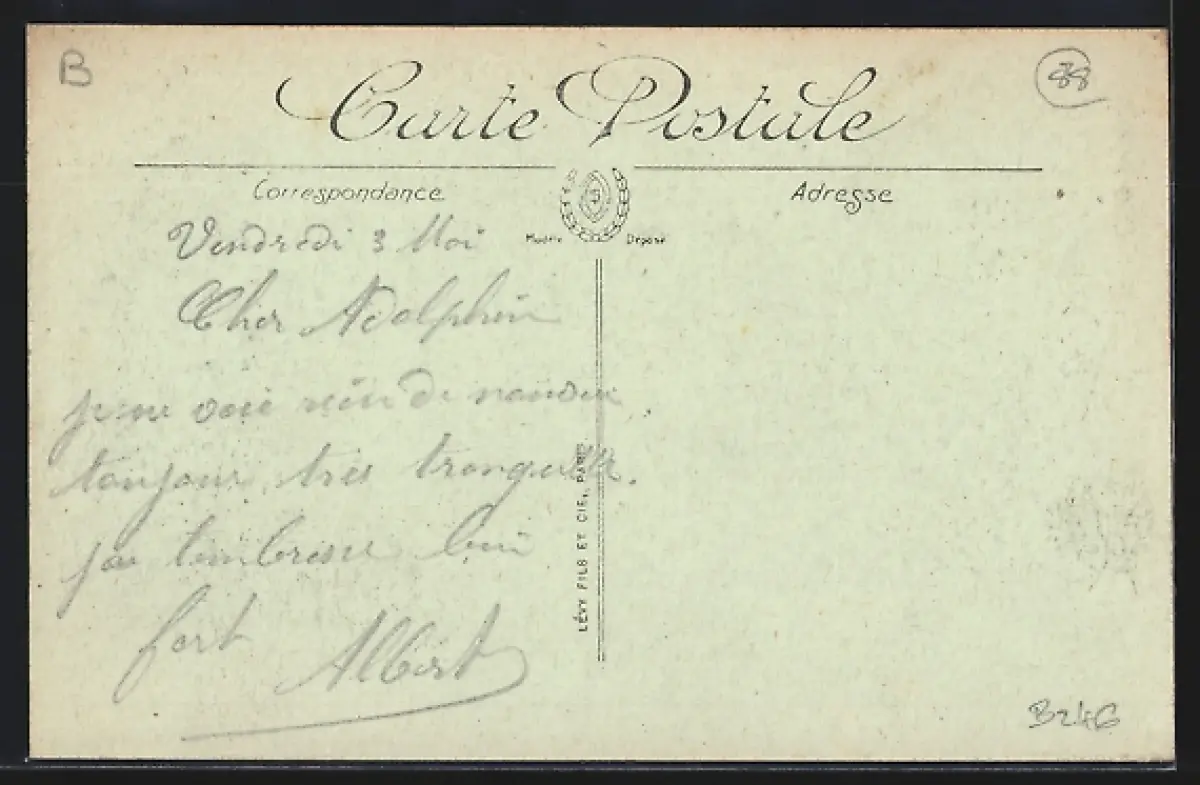 B
88
Carte Postale
Correspondance
Adresse
Modèle Déposé
Vendredi 3 Mai
Cher Adolphin
je ne voie rien de nouveau
toujour tres tranquille.
je t'embrasse bien
fort Albert
LÉVY FILS ET CIE, PARIS
B246